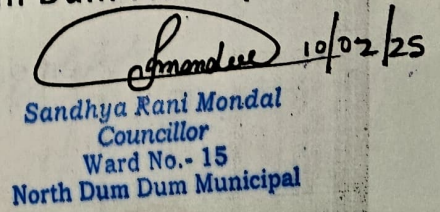 10/02/25
Sandhya Rani Mondal
Councillor
Ward No.- 15
North Dum Dum Municipal